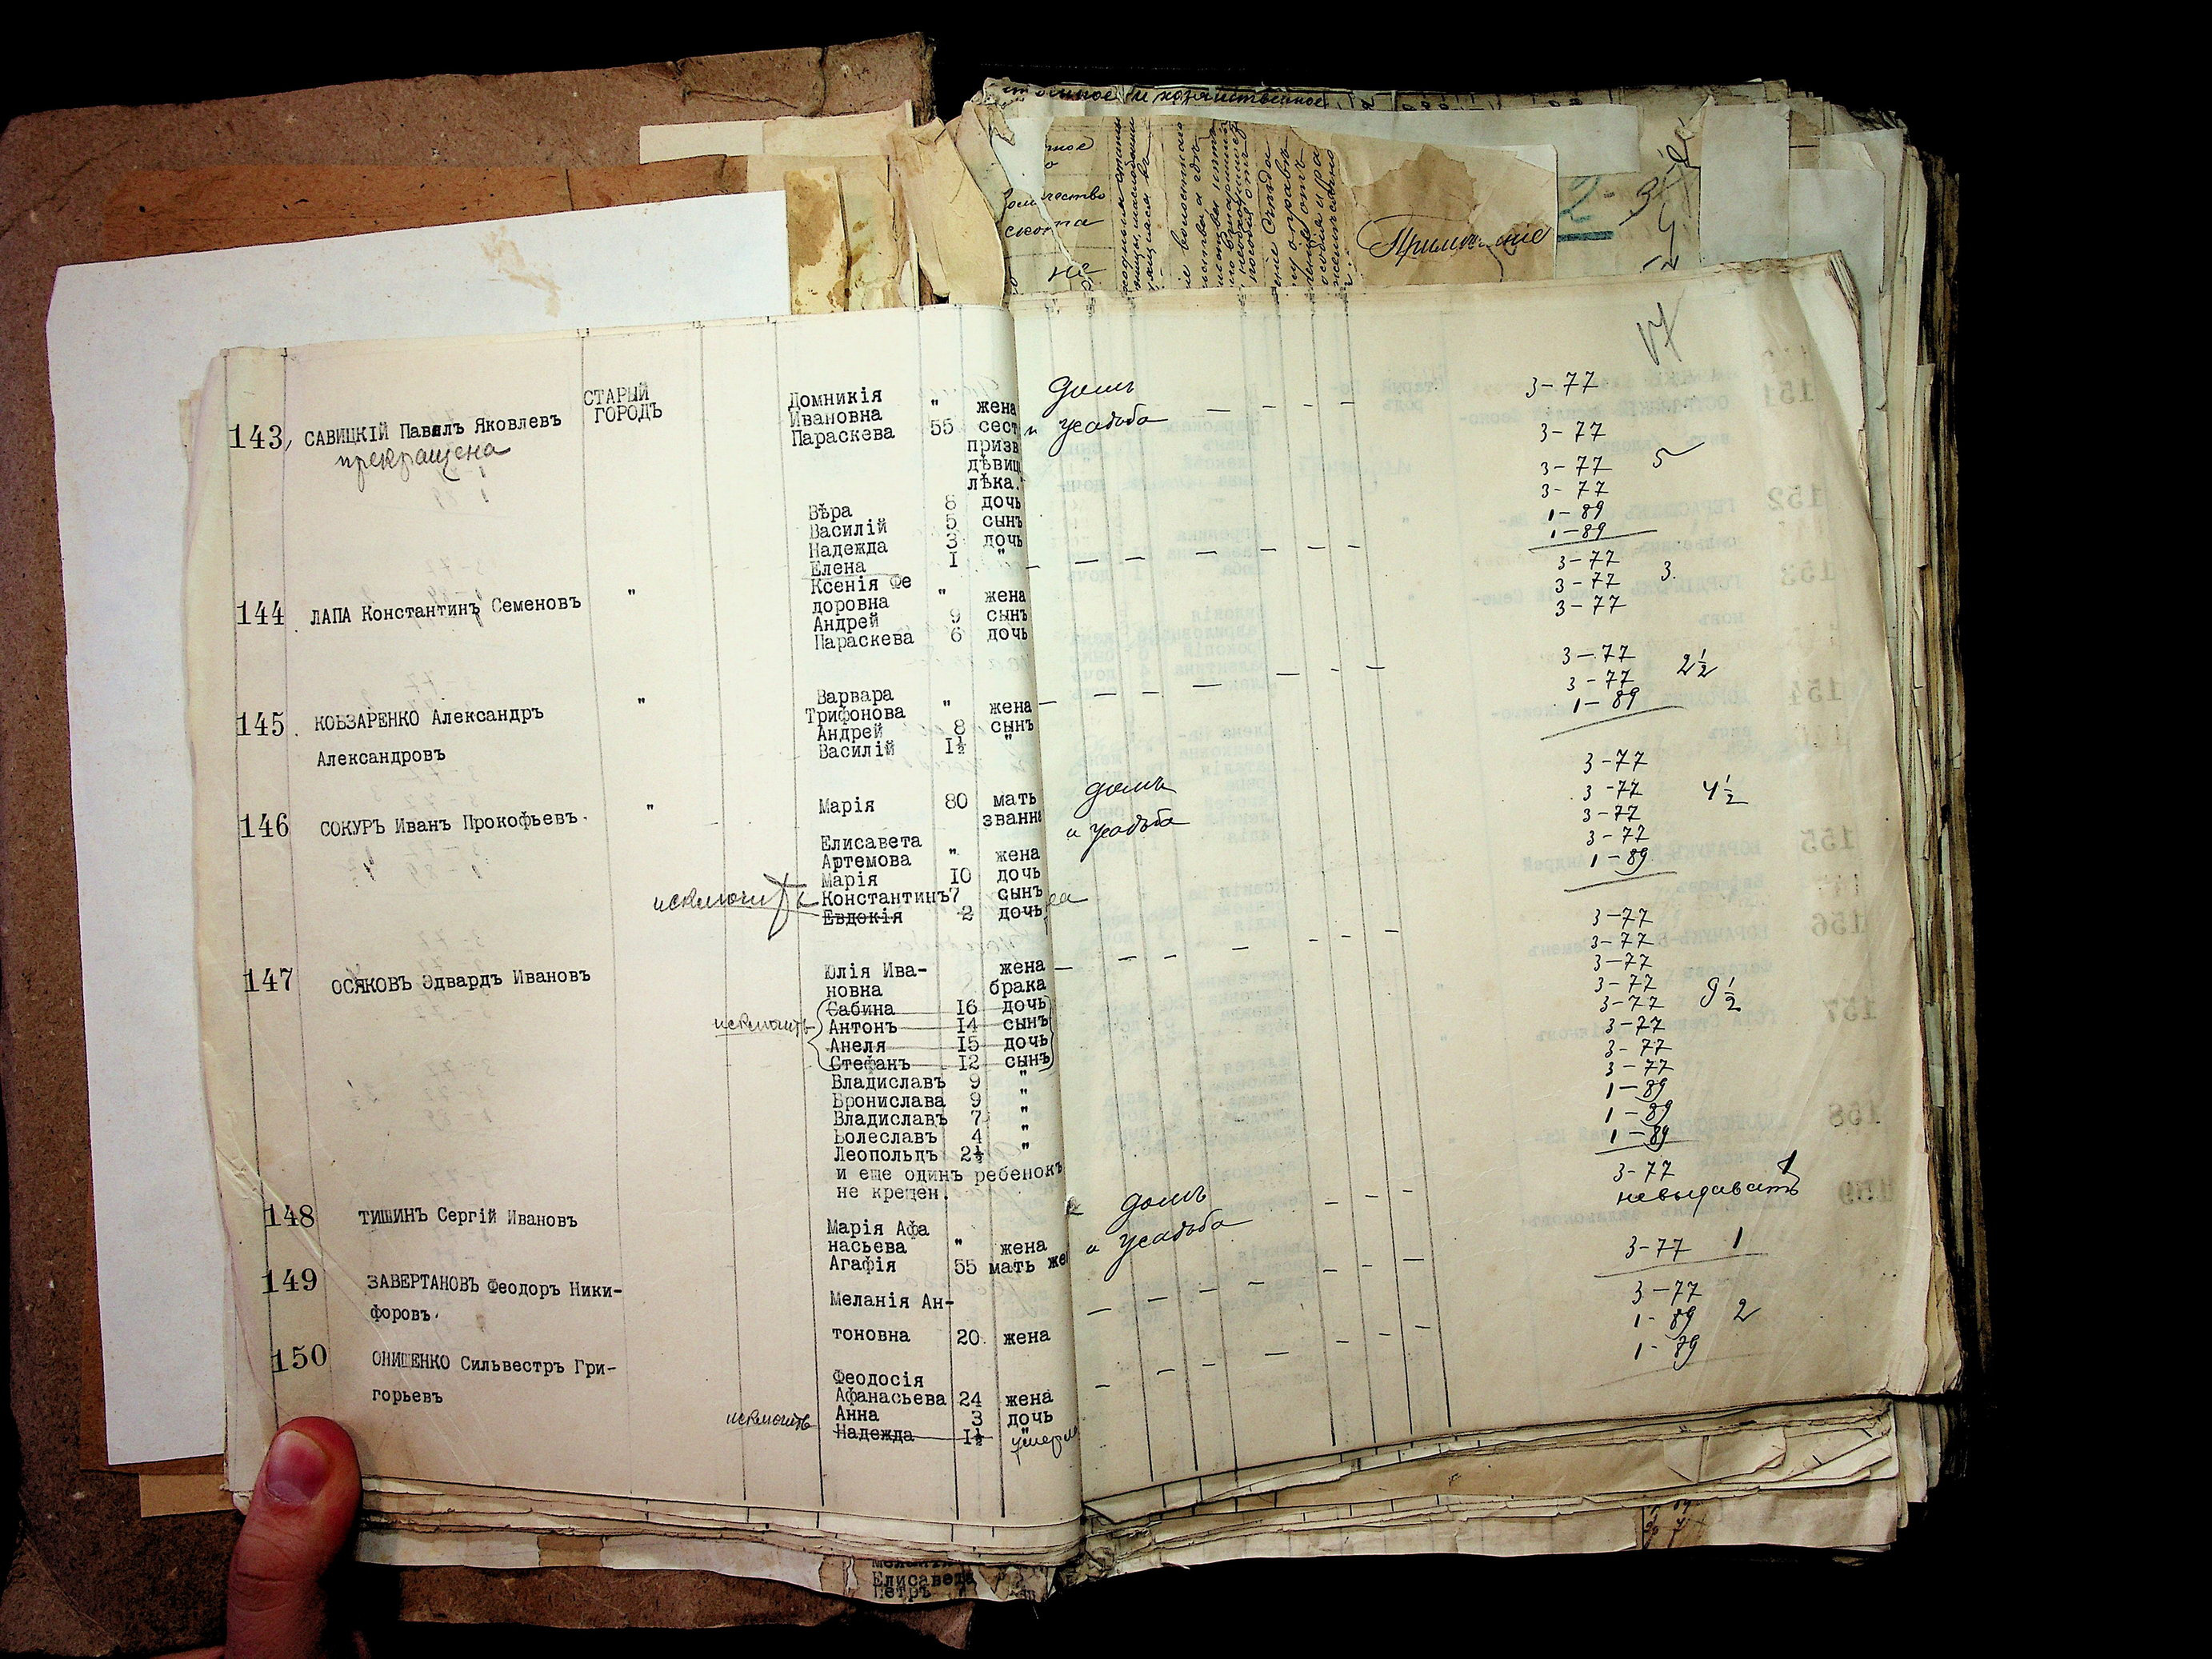 143 САВИЦКІЙ Павелъ Яковлевъ
прекращена
СТАРЫЙ
ГОРОДЪ
Домникія
Ивановна " жена
Параскева 55 сест
призв
дѣвиц
лѣка.
Вѣра 8 дочь
Василій 5 сынъ
Надежда 3 дочь
Елена I "
домъ
и усадьба
3-77
3-77
3-77 5
3-77
1-89
1-89
144 ЛАПА Константинъ Семеновъ "
Ксенія Фе
доровна " жена
Андрей 9 сынъ
Параскева 6 дочь
3-77
3-77 3.
3-77
145. КОБЗАРЕНКО Александръ "
Александровъ
Варвара
Трифонова " жена
Андрей 8 сынъ
Василій I½ "
3-77
3-77 2½
1-89
146 СОКУРЪ Иванъ Прокофьевъ. "
Марія 80 мать
званна
Елисавета
Артемова " жена
Марія IO дочь
Константинъ 7 сынъ
исключить Евдокія 2 дочь
домъ
и усадьба
3-77
3-77 4½
3-77
3-77
1-89
147 ОСЯКОВЪ Эдвардъ Ивановъ
Юлія Ива- жена
новна брака
Сабина I6 дочь
исключить Антонъ I4 сынъ
Анеля I5 дочь
Стефанъ I2 сынъ
Владиславъ 9 "
Бронислава 9 "
Владиславъ 7 "
Болеславъ 4 "
Леопольдъ 2½ "
и еще одинъ ребенокъ
не крещен.
3-77
3-77
3-77
3-77
3-77 9½
3-77
3-77
3-77
1-89
1-89
1-89
148 ТИШИНЪ Сергій Ивановъ
Марія Афа
насьева " жена
Агафія 55 мать же
домъ
и усадьба
3-77 1
невыдавать
3-77 1
149 ЗАВЕРТАНОВЪ Феодоръ Ники-
форовъ.
Меланія Ан-
тоновна 20. жена
3-77
1-89 2
1-89
150 ОНИЩЕНКО Сильвестръ Гри-
горьевъ
Феодосія
Афанасьева 24 жена
Анна 3 дочь
исключить Надежда I½ " умерла
17
Примѣчание
скота
Елисавета
Петръ